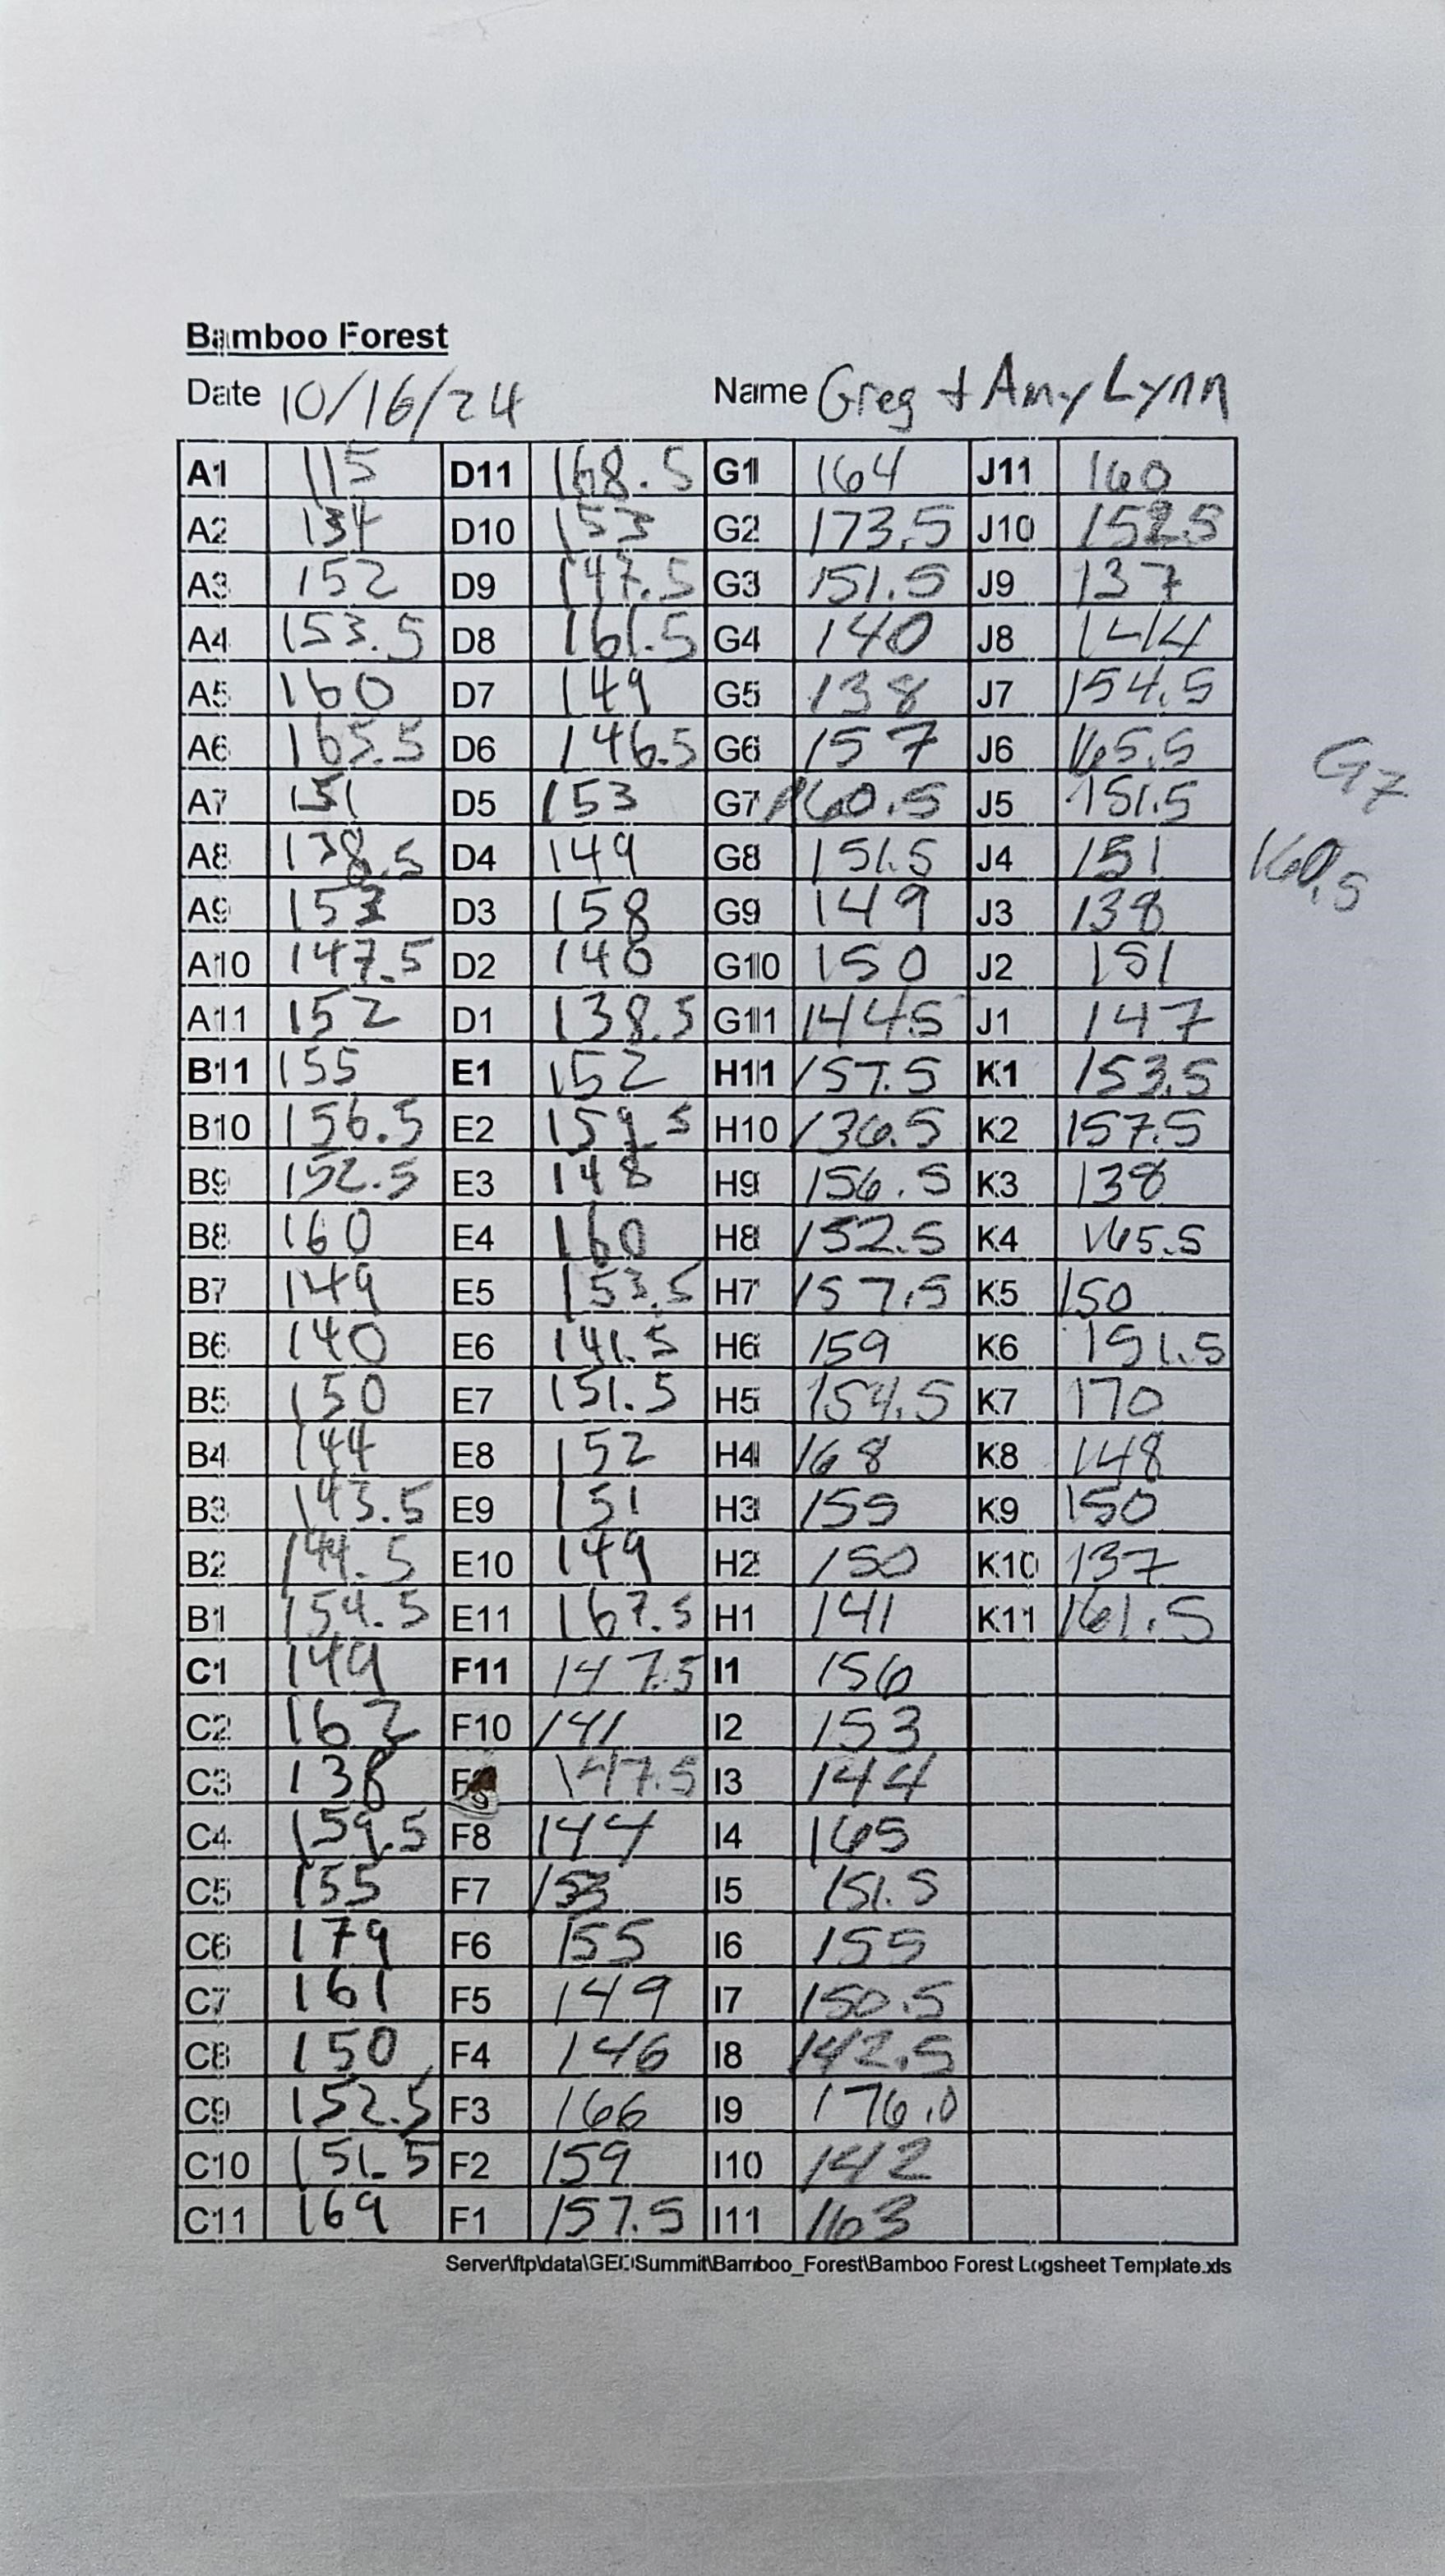 Bamboo Forest
Date 10/16/24 Name Greg + Amy Lynn
A1 115 D11 168.5 G1 164 J11 160
A2 134 D10 153 G2 173.5 J10 152.5
A3 152 D9 147.5 G3 151.5 J9 137
A4 153.5 D8 161.5 G4 140 J8 144
A5 160 D7 149 G5 138 J7 154.5
A6 165.5 D6 146.5 G6 157 J6 165.5
G7
A7 151 D5 153 G7 160.5 J5 151.5
A8 138.5 D4 149 G8 151.5 J4 151
160.5
A9 153 D3 158 G9 149 J3 138
A10 147.5 D2 140 G10 150 J2 151
A11 152 D1 138.5 G11 144.5 J1 147
B11 155 E1 152 H11 157.5 K1 153.5
B10 156.5 E2 159.5 H10 136.5 K2 157.5
B9 152.5 E3 148 H9 156.5 K3 138
B8 160 E4 160 H8 152.5 K4 165.5
B7 149 E5 153.5 H7 157.5 K5 150
B6 140 E6 141.5 H6 159 K6 151.5
B5 150 E7 151.5 H5 154.5 K7 170
B4 144 E8 152 H4 168 K8 148
B3 143.5 E9 151 H3 155 K9 150
B2 144.5 E10 149 H2 150 K10 137
B1 154.5 E11 167.5 H1 141 K11 161.5
C1 149 F11 147.5 I1 156
C2 162 F10 141 I2 153
C3 138 F9 147.5 I3 144
C4 159.5 F8 144 I4 165
C5 155 F7 I5 151.5
C6 179 F6 155 I6 155
C7 161 F5 149 I7 150.5
C8 150 F4 146 I8 142.5
C9 152.5 F3 166 I9 176.0
C10 151.5 F2 159 I10 142
C11 169 F1 157.5 I11 163
Server\ftp\data\GEOSummit\Bamboo_Forest\Bamboo Forest Logsheet Template.xls